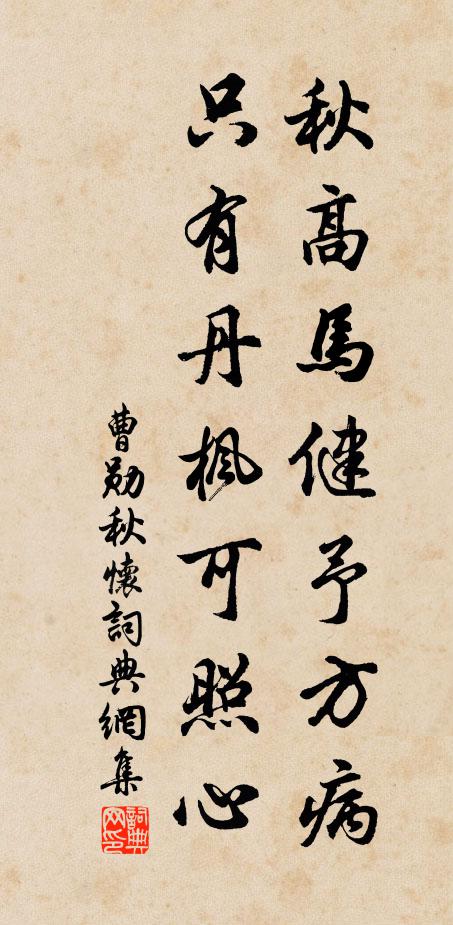 秋高馬健予方病
只有丹楓可照心
曹勛秋懷詞典網集
詞典網印